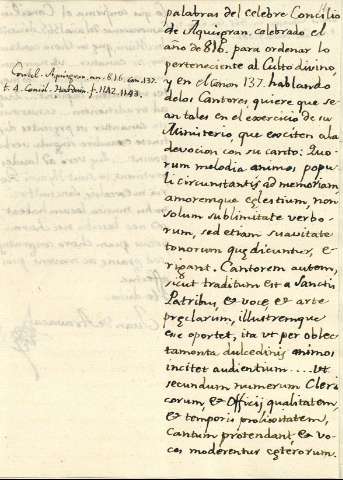 palabras del celebre Concilio
de Aquisgran. celebrado el
año de 816. para ordenar lo
perteneciente al Culto divino,
y en el Canon 137. hablando
delos Cantores, quiere que se-
an tales en el exercicio de su
Ministerio, que exciten ala
devocion con su canto: Quo-
rum melodia animos popu-
li circunstantis ad memoriam
amoremque cęlestium, non
solum sublimitate verbo-
rum, sed etiam suavitate
tonorum quę dicuntur, e-
rigant. Cantorem autem,
sicut traditum est a Sanctis
Patribus, & voce, & arte
pręclarum, illustremque
esse oportet, ita vt per oblec-
tamenta dulcedinis animos
incitet audientium.... Vt
secundum numerum Cleri-
corum, & Officij qualitatem,
& temporis prolixitatem,
Cantum protendant, & vo-
ces moderentur cęterorum.
Concil. Aquisgran. an. 816. can. 137.
t. 4. Concil. Harduin. f. 1142. 1143.